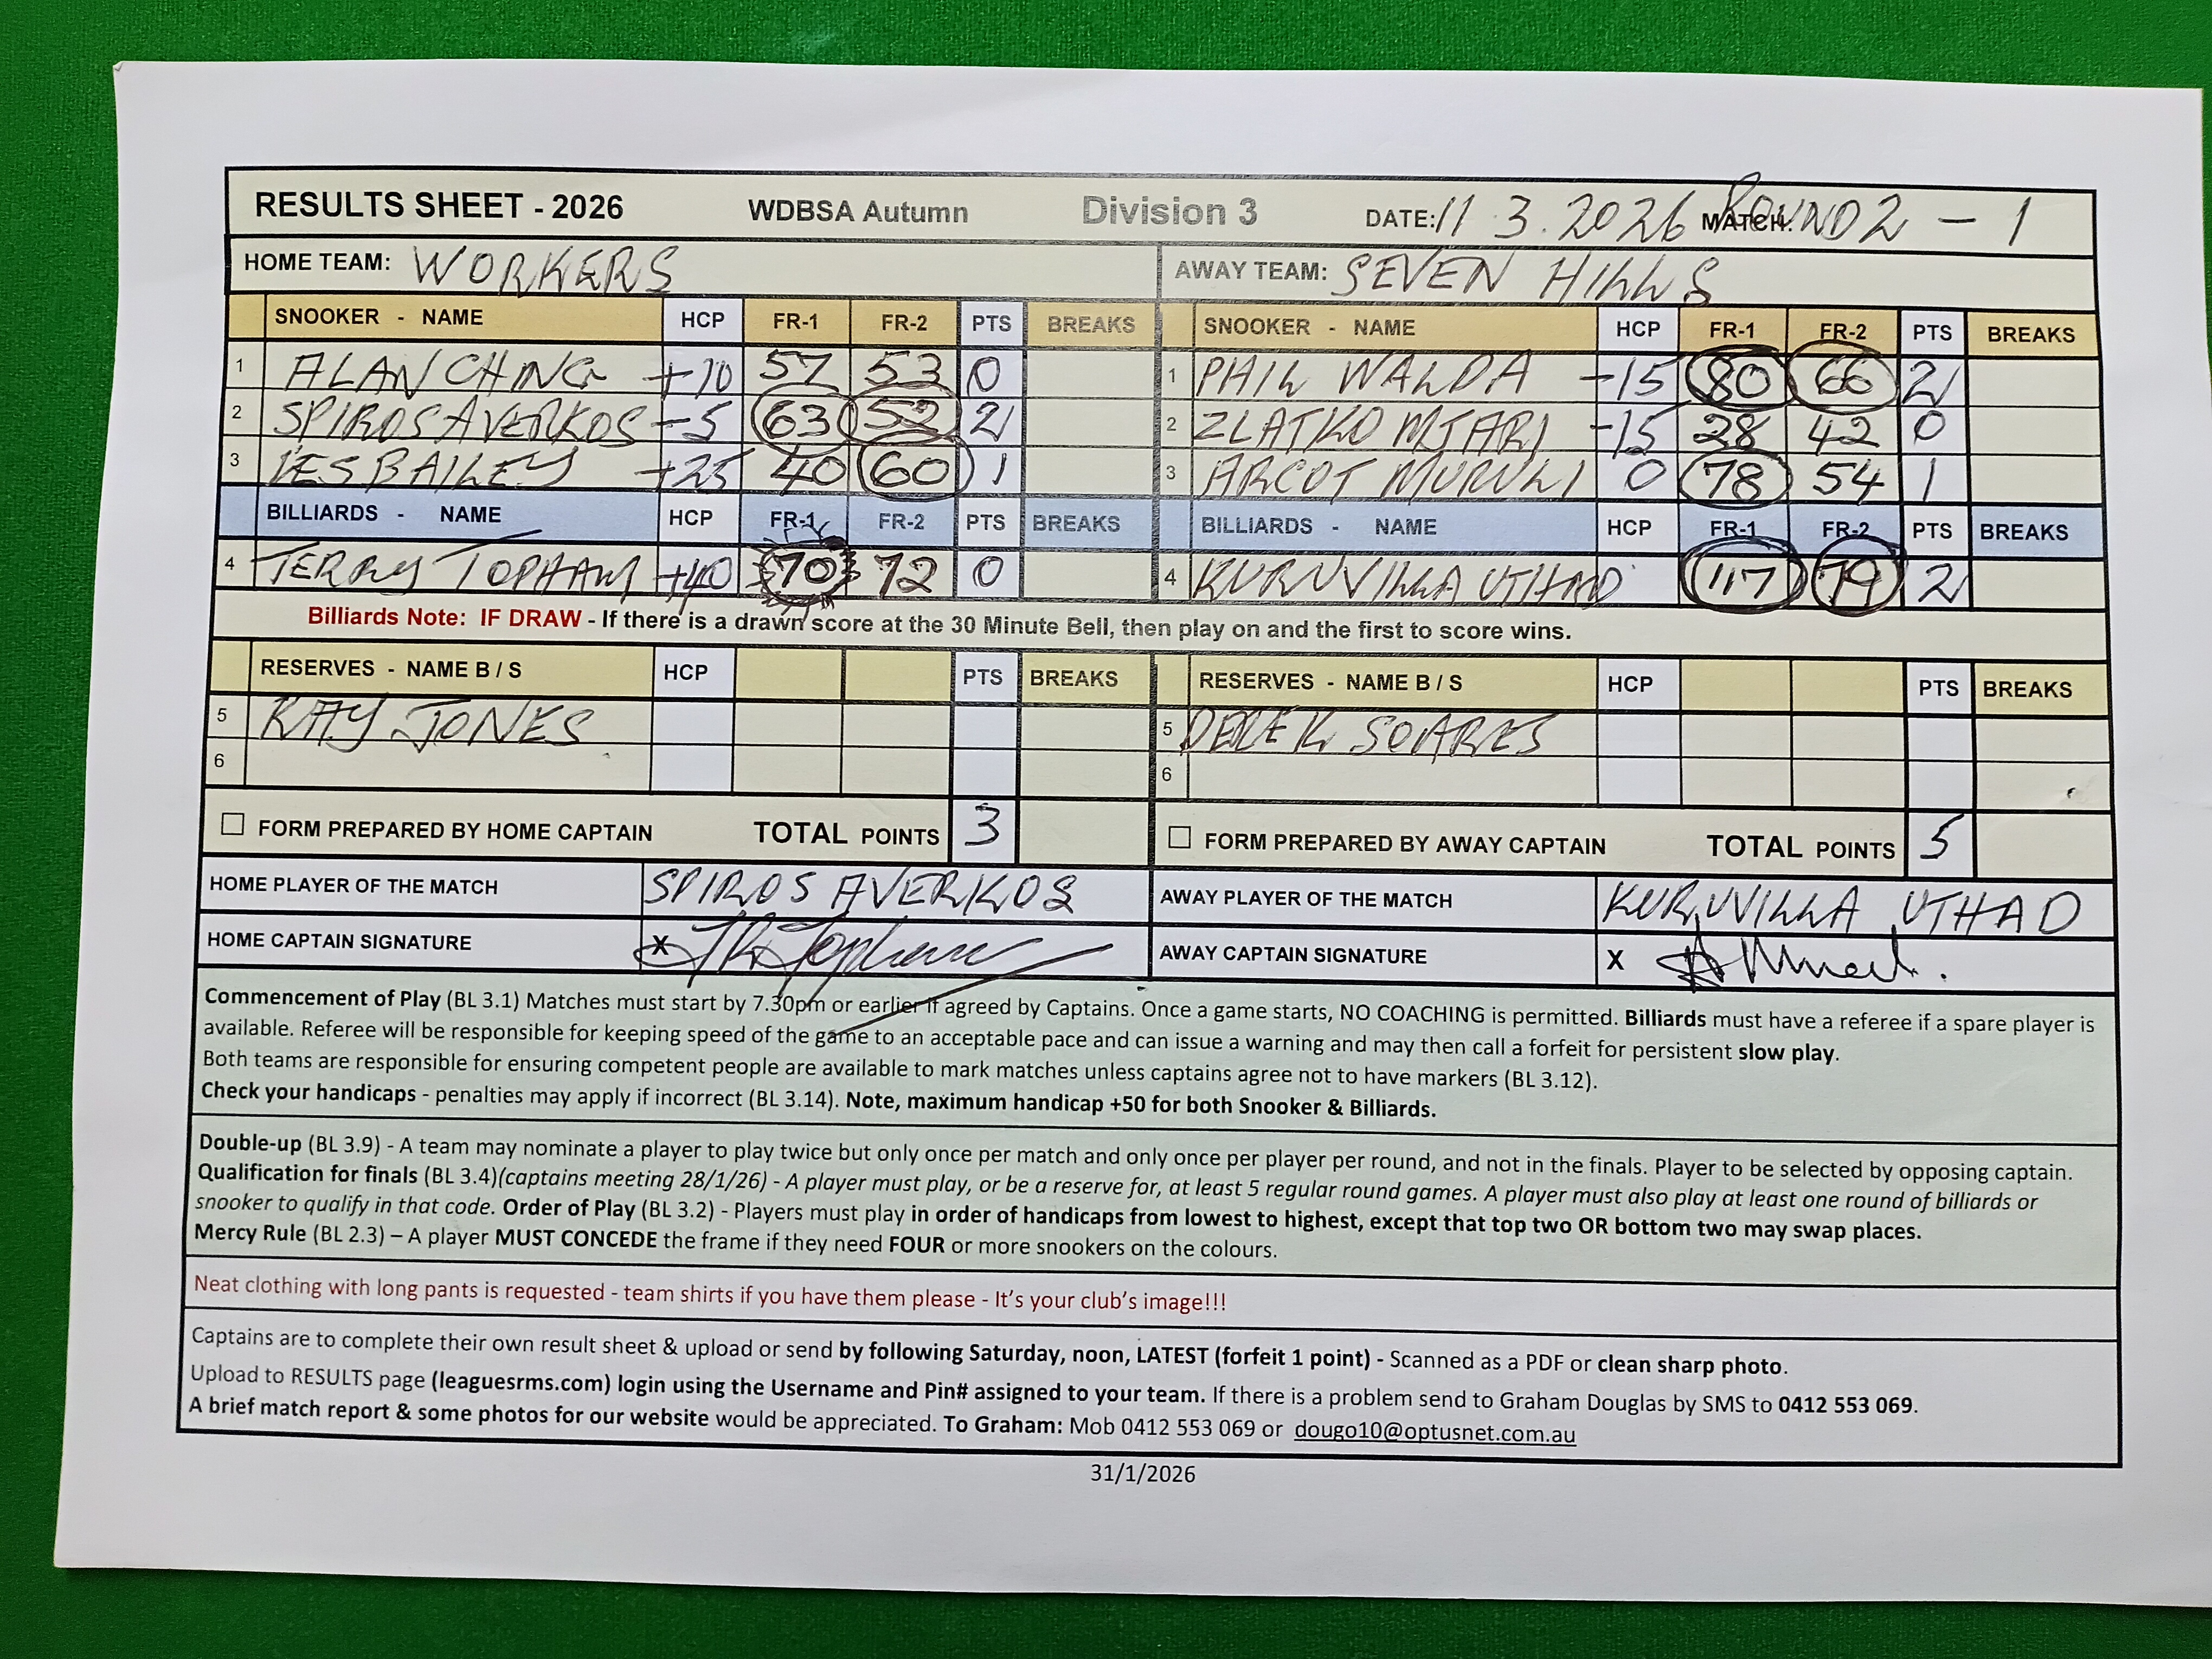 RESULTS SHEET - 2026 WDBSA Autumn Division 3 DATE: 11.3.2026 MATCH: ROUND 2 - 1
HOME TEAM: WORKERS AWAY TEAM: SEVEN HILLS
SNOOKER - NAME HCP FR-1 FR-2 PTS BREAKS SNOOKER - NAME HCP FR-1 FR-2 PTS BREAKS
1 ALAN CHING +10 57 53 0 1 PHIL WALDA -15 80 66 2
2 SPIROS AVERKOS -5 63 52 2 2 ZLATKO MJARI -15 28 42 0
3 LES BAILEY +25 40 60 1 3 ARCOT MURULI 0 78 54 1
BILLIARDS - NAME HCP FR-1 FR-2 PTS BREAKS BILLIARDS - NAME HCP FR-1 FR-2 PTS BREAKS
4 TERRY TOPHAM +40 70 72 0 4 KURUVILLA UTHAD 117 79 2
Billiards Note: IF DRAW - If there is a drawn score at the 30 Minute Bell, then play on and the first to score wins.
RESERVES - NAME B / S HCP PTS BREAKS RESERVES - NAME B / S HCP PTS BREAKS
5 KAY JONES 5 DEREK SOARES
6 6
FORM PREPARED BY HOME CAPTAIN TOTAL POINTS 3 FORM PREPARED BY AWAY CAPTAIN TOTAL POINTS 5
HOME PLAYER OF THE MATCH SPIROS AVERKOS AWAY PLAYER OF THE MATCH KURUVILLA UTHAD
HOME CAPTAIN SIGNATURE X AWAY CAPTAIN SIGNATURE X
Commencement of Play (BL 3.1) Matches must start by 7.30pm or earlier if agreed by Captains. Once a game starts, NO COACHING is permitted. Billiards must have a referee if a spare player is
available. Referee will be responsible for keeping speed of the game to an acceptable pace and can issue a warning and may then call a forfeit for persistent slow play.
Both teams are responsible for ensuring competent people are available to mark matches unless captains agree not to have markers (BL 3.12).
Check your handicaps - penalties may apply if incorrect (BL 3.14). Note, maximum handicap +50 for both Snooker & Billiards.
Double-up (BL 3.9) - A team may nominate a player to play twice but only once per match and only once per player per round, and not in the finals. Player to be selected by opposing captain.
Qualification for finals (BL 3.4)(captains meeting 28/1/26) - A player must play, or be a reserve for, at least 5 regular round games. A player must also play at least one round of billiards or
snooker to qualify in that code. Order of Play (BL 3.2) - Players must play in order of handicaps from lowest to highest, except that top two OR bottom two may swap places.
Mercy Rule (BL 2.3) – A player MUST CONCEDE the frame if they need FOUR or more snookers on the colours.
Neat clothing with long pants is requested - team shirts if you have them please - It's your club's image!!!
Captains are to complete their own result sheet & upload or send by following Saturday, noon, LATEST (forfeit 1 point) - Scanned as a PDF or clean sharp photo.
Upload to RESULTS page (leaguesrms.com) login using the Username and Pin# assigned to your team. If there is a problem send to Graham Douglas by SMS to 0412 553 069.
A brief match report & some photos for our website would be appreciated. To Graham: Mob 0412 553 069 or dougo10@optusnet.com.au
31/1/2026